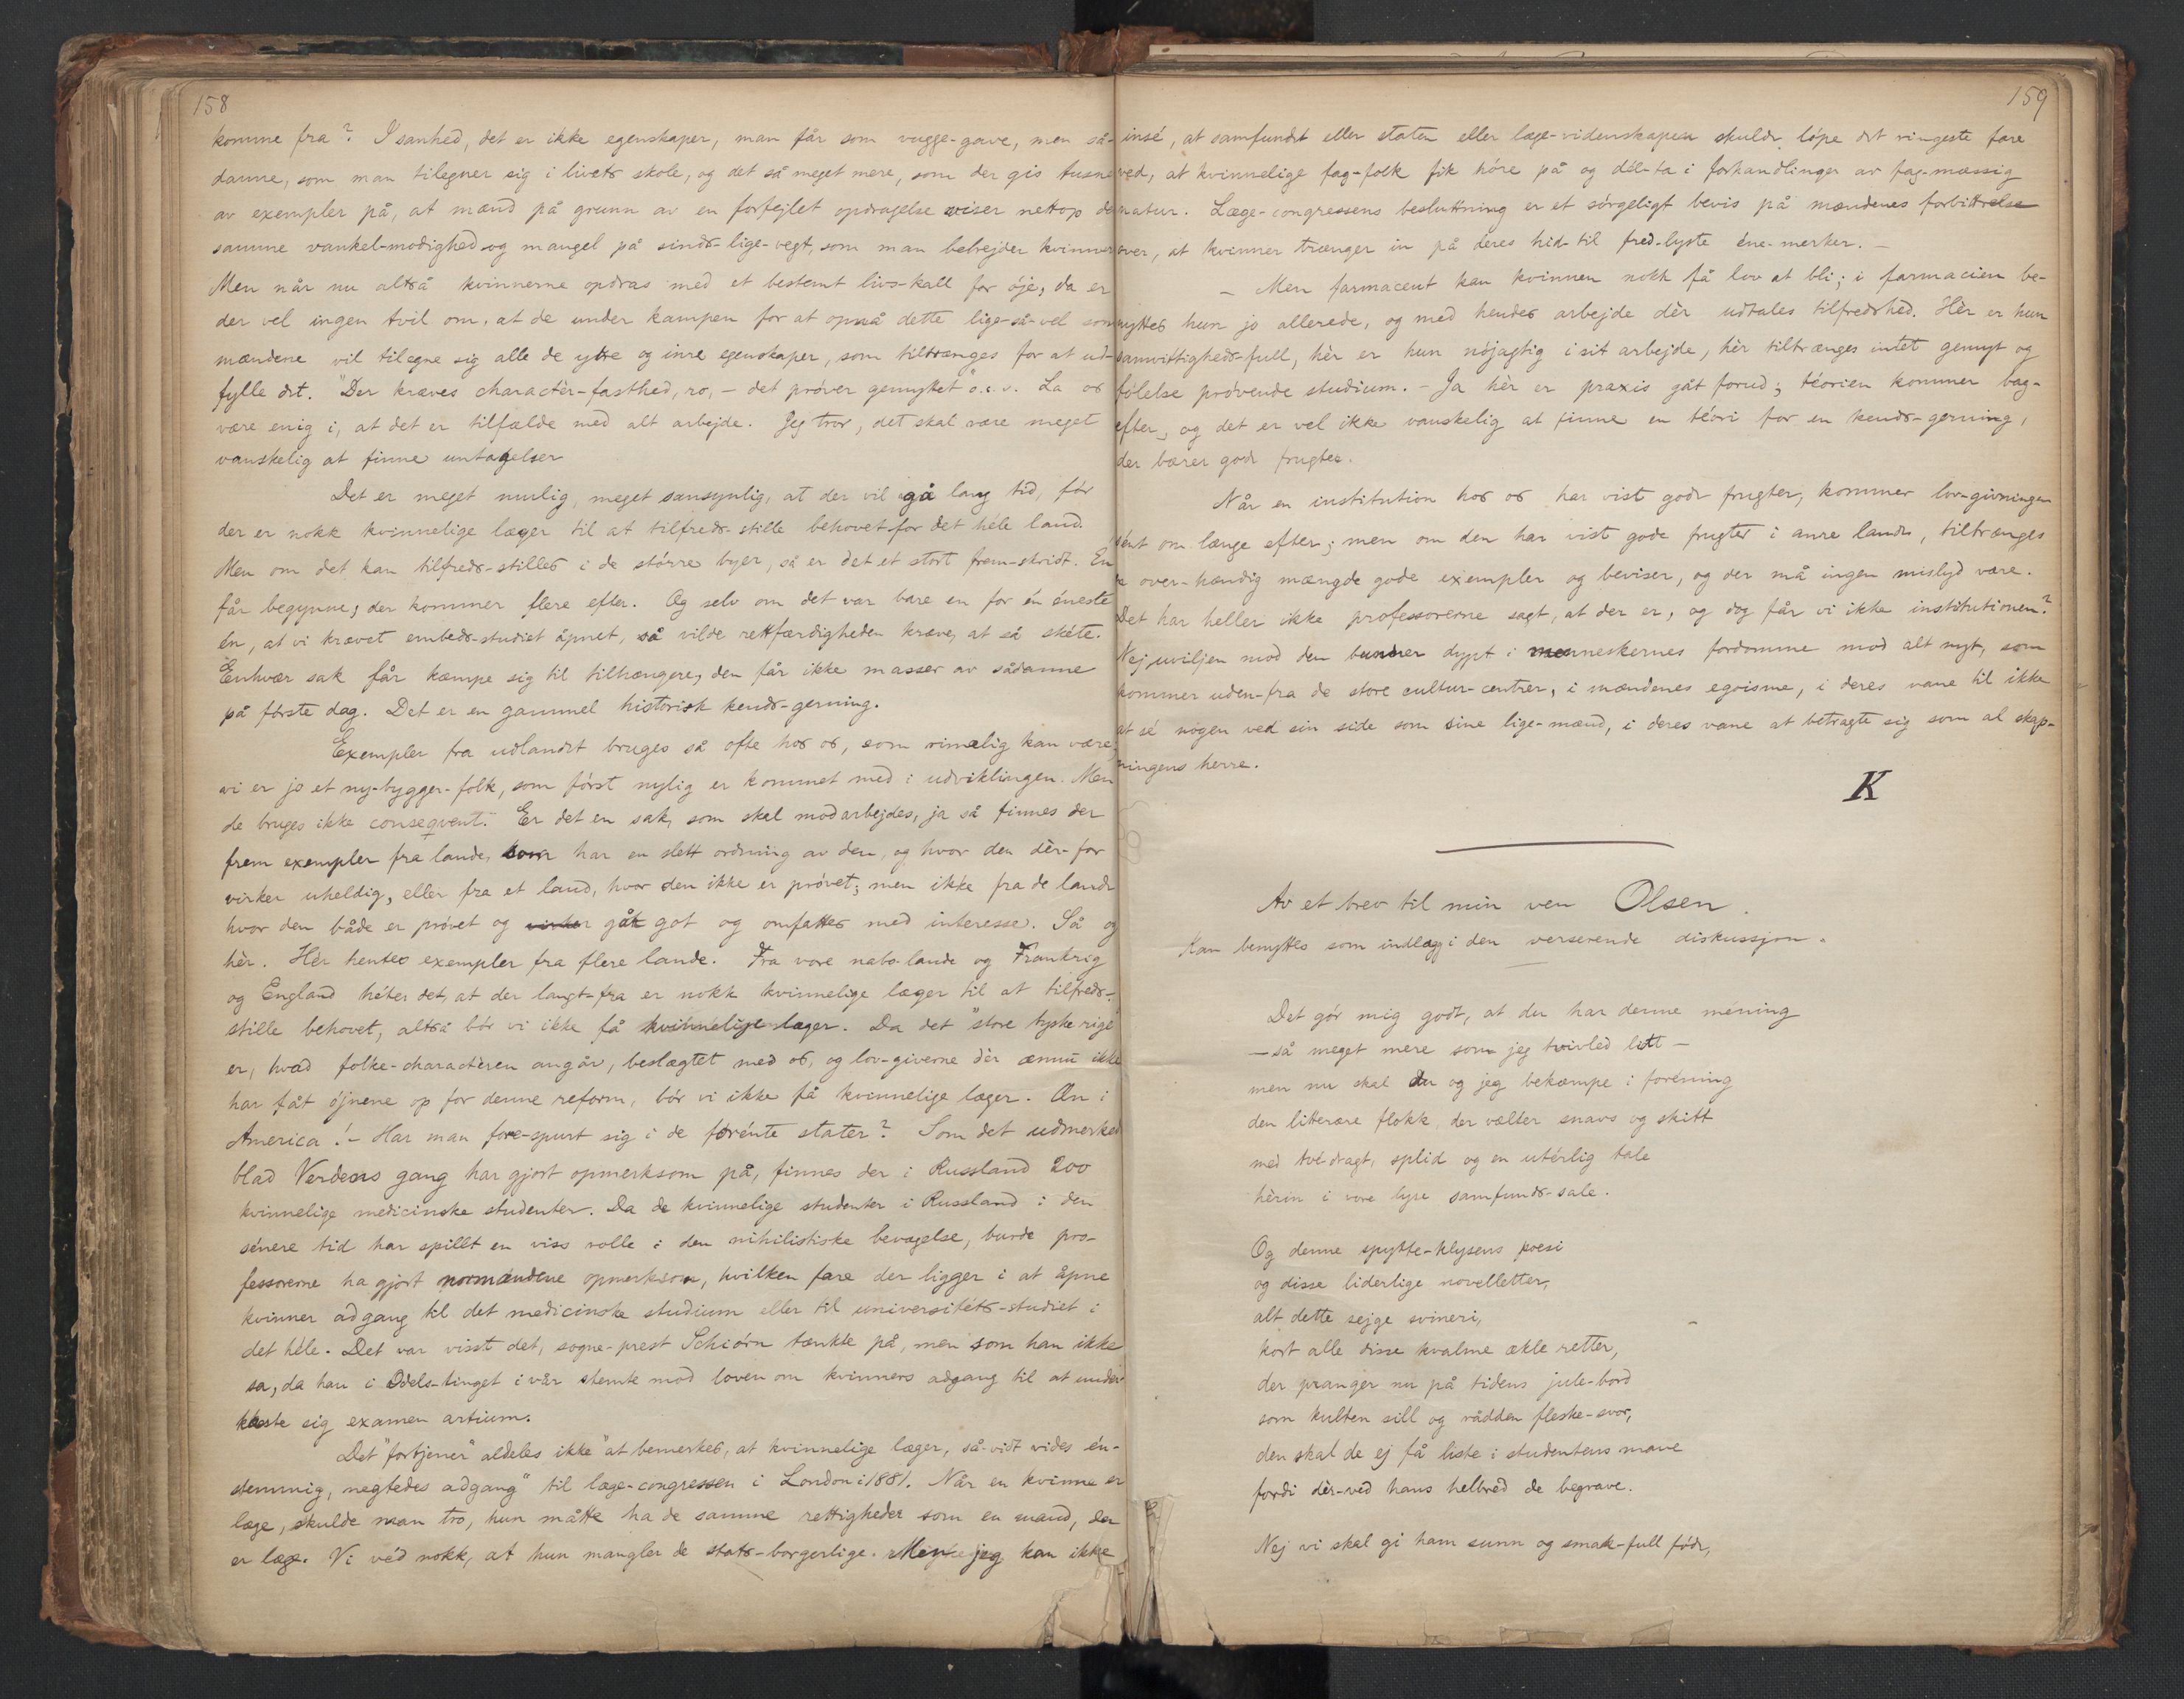 158
komme fra? I sanhed, det er ikke egenskaper, man får som vugge-gave, men så-
danne, som man tilegner sig i livets skole, og det så meget mere, som der gis tusne
av exempler på, at mænd på grunn av en forfejlet opdragelse viser nettop de
samme vankel-modighed og mangel på sinds-lige-vegt, som man bebrejder kvinner
Men når nu altså kvinnerne opdras med et bestemt livs-kall for øje, da er
der vel ingen tvil om, at de under kampen for at opnå dette lige-så-vel som
mændene vil tilegne sig alle de ytre og inre egenskaper, som tiltrænges for at ud-
fylle det. "Der kræves charactèr-fasthed, ro, – det prøver gemyttet" o.s.v. La os
være enig i, at det er tilfælde med alt arbejde. Jeg tror, det skal være meget
vanskelig at finne untagelser
Det er meget mulig, meget sansynlig, at der vil gå lang tid, før
der er nokk kvinnelige læger til at tilfreds-stille behovet for det héle land.
Men om det kan tilfreds-stilles i de større byer, så er det et stort frem-skridt. En
får begynne, der kommer flere efter. Og selv om det var bare en for én éneste
én, at vi krævet embeds-studiet åpnet, så vilde rettfærdigheden kræve, at så skéte.
Enhvær sak får kæmpe sig til tilhængere, den får ikke masser av sådanne
på første dag. Det er en gammel historisk kends-gerning.
Exempler fra udlandet bruges så ofte hos os, som rimelig kan være,
vi er jo et ny-bygger-folk, som først nylig er kommet med i udviklingen. Men
de bruges ikke conseqvent. Er det en sak, som skal modarbejdes, ja så finnes der
frem exempler fra lande, som har en slett ordning av den, og hvor den dèr-for
virker uheldig, eller fra et land, hvor den ikke er prøvet; men ikke fra de lande
hvor den både er prøvet og virker gåt got og omfattes med interesse. Så og
hèr. Hèr hentes exempler fra flere lande. Fra vore nabo-lande og Frankrig
og England héter det, at der langt-fra er nokk kvinnelige læger til at tilfreds-
stille behovet, altså bør vi ikke få kvinnelige læger. Da det "store tyske rige"
er, hvad folke-charactèren angår, beslægtet med os, og lov-giverne dèr ænnu ikke
har fåt øjnene op for denne reform, bør vi ikke få kvinnelige læger. Æn i
America! – Har man fore-spurt sig i de forénte stater? Som det udmerked
blad Verdens gang har gjort opmerksom på, finnes der i Russland 200
kvinnelige medicinske studenter. Da de kvinnelige studenter i Russland i den
sénere tid har spillt en viss rolle i den nihilistiske bevægelse, burde pro-
fessorerne ha gjort normændene opmerksom, hvilken fare der ligger i at åpne
kvinner adgang til det medicinske studium eller til universitéts-studiet i
det héle. Det var visst det, sogne-prest Schiørn tænkte på, men som han ikke
sa, da han i Odels-tinget i vår stemte mod loven om kvinners adgang til at under-
kaste sig examen artium.
Det "fortjener" aldeles ikke "at bemerkes, at kvinnelige læger, så-vidt vides én-
stemmig, negtedes adgang" til læge-congressen i London i 1881. Når en kvinne er
læge, skulde man tro, hun måtte ha de samme rettigheder som en mand, der
er læge. Vi véd nokk, at hun mangler de stats-borgerlige. Men jeg kan ikke
159
insé, at samfundet eller staten eller læge-videnskapen skulde løpe det ringeste fare
ved, at kvinnelige fag-folk fik høre på og dél-ta i forhandlinger av fag-mæssig
natur. Læge-congressens besluttning er et sørgeligt bevis på mændenes forbittrelse
over, at kvinner trænger in på deres hid-til fred-lyste éne-merker. –
– Men farmaceut kan kvinnen nokk få lov at bli; i farmacien be-
nyttes hun jo allerede, og med hendes arbejde dèr udtales tilfredshed. Hèr er hun
samvittigheds-full, hèr er hun nøjagtig i sit arbejde, hèr tiltrænges intet gemyt og
følelse prøvende studium. – Ja hèr er praxis gåt forud; téorien kommer bag-
efter, og det er vel ikke vanskelig at finne en téori for en kends-gerning,
der bærer gode frugter.
Når en institution hos os har vist gode frugter, kommer lov-givningen
sént om længe efter; men om den har vist gode frugter i anre lande, tiltrænges
over-hændig mængde gode exempler og beviser, og der må ingen mislyd være.
Det har heller ikke professorerne sagt, at der er, og dog får vi ikke institutionen?
Nej uviljen mod den bunder dypt i menneskernes fordomme mod alt nyt, som
kommer uden-fra de store cultur-centrer, i mændenes egoisme, i deres vane til ikke
at sé nogen ved sin side som sine lige-mænd, i deres vane at betragte sig som al skap-
ningens herre.
K
Av et brev til min ven Olsen.
Kan benyttes som indlægg i den verserende diskussjon.
Det gør mig godt, at du har denne méning
– så meget mere som jeg tvivled litt –
men nu skal du og jeg bekæmpe i foréning
den literære flokk, der vælter snavs og skitt
med tvé-dragt, splid og en utérlig tale
hèrin i vore lyse samfunds-sale.
Og denne spytte-klysens poesi
og disse liderlige novelletter,
alt dette sejge svineri,
kort alle disse kvalme ækle retter,
der pranger nu på tidens jule-bord
som kulten sill og rådden fleske-svor,
den skal de ej få liste i studentens mave
fordi dèr-ved hans helbred de begrave.
Nej vi skal gi ham sunn og smak-full føde,